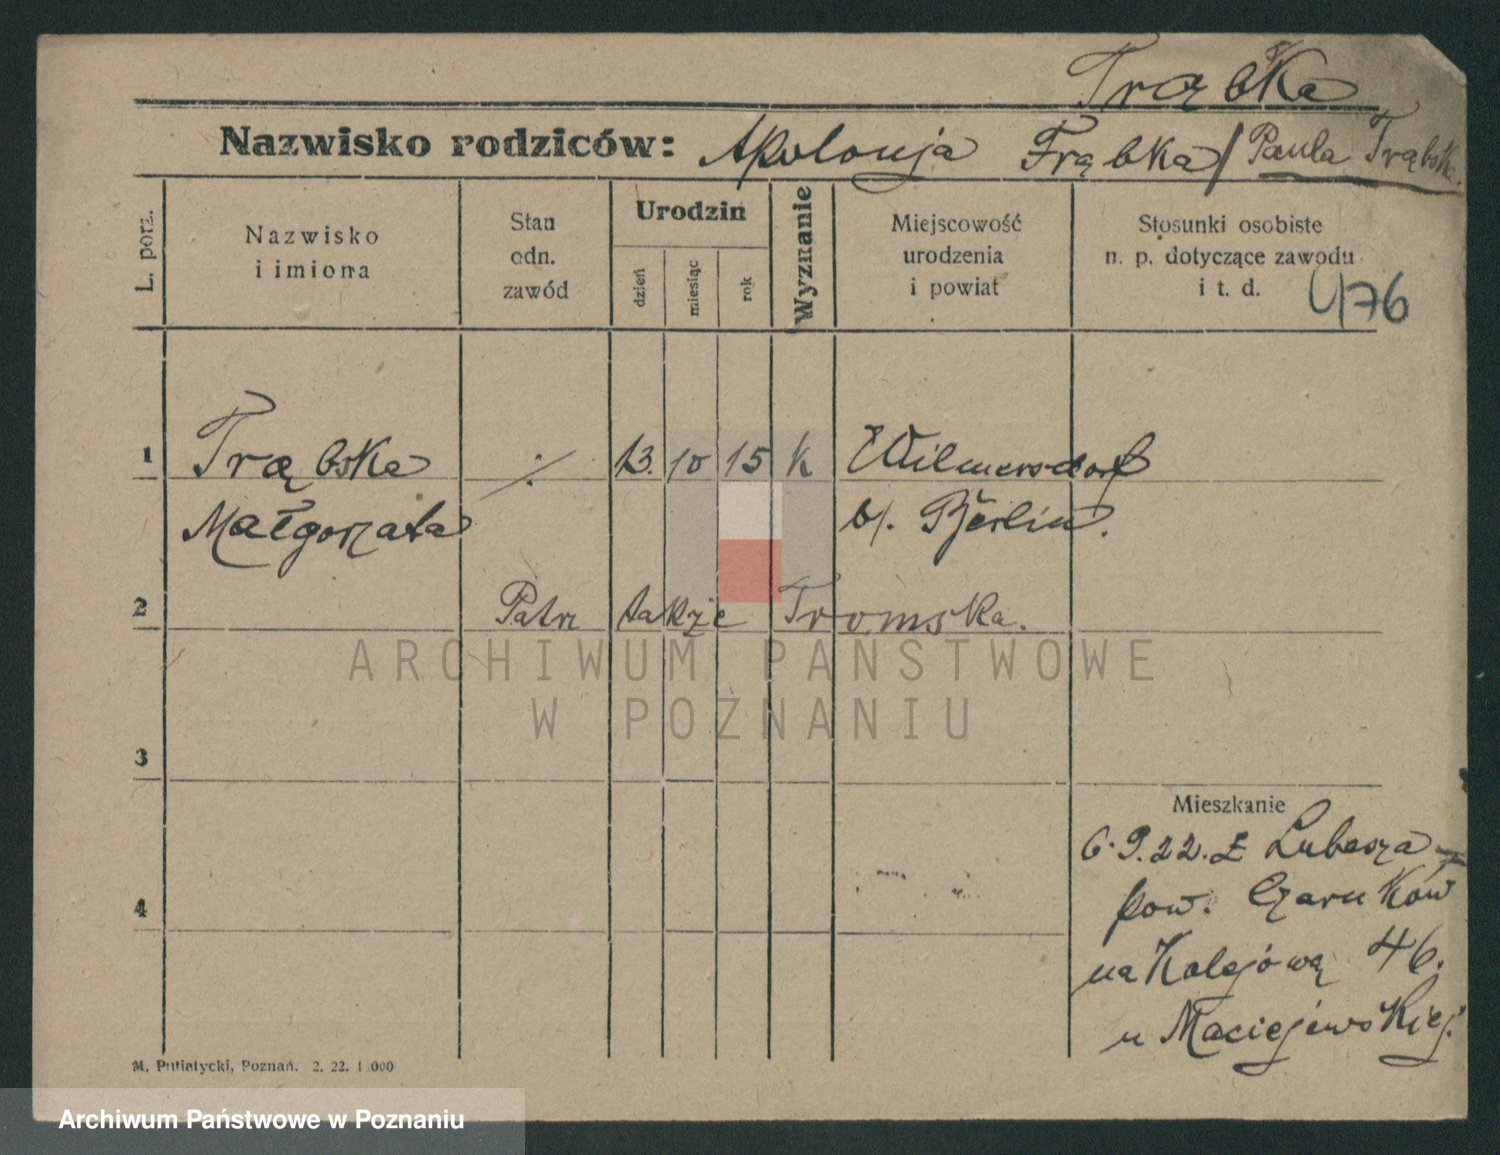 Trąbka
Nazwisko rodziców: Apolonja Trąbka / Paula Trąbska
L. porz.
Nazwisko
i imiona
Stan
odn.
zawód
Urodzin
dzień
miesiąc
rok
Wyznanie
Miejscowość
urodzenia
i powiat
Stosunki osobiste
n. p. dotyczące zawodu
i t. d.
476
1 Trąbska ./. 13. 10 15 k Wilmersdorf
Małgorzata b/. Berlin.
2 Patrz także Tromska.
3
Mieszkanie
6.9.22. z Lubasza
pow. Czarnków
4
na Kolejową 46.
u Maciejewskiej.
M. Putiatycki, Poznań. 2. 22. 1 000
ARCHIWUM PAŃSTWOWE
W POZNANIU
Archiwum Państwowe w Poznaniu